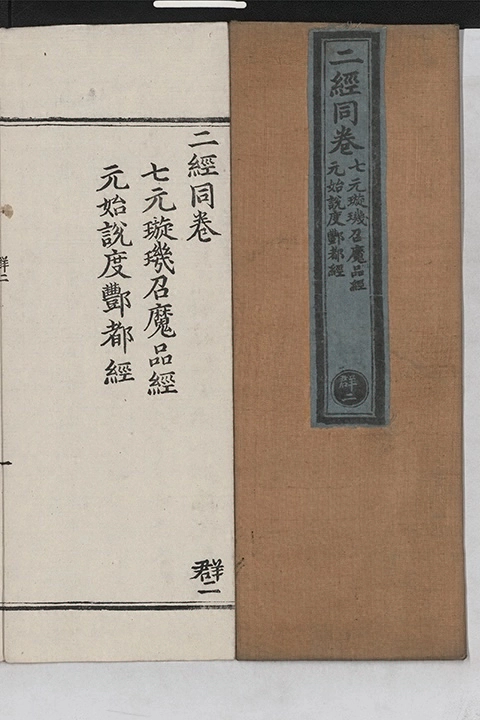 二經同卷
七元璇璣召魔品經
元始說度酆都經
群二
二經同卷
七元璇璣召魔品經
元始說度酆都經
群二
群二